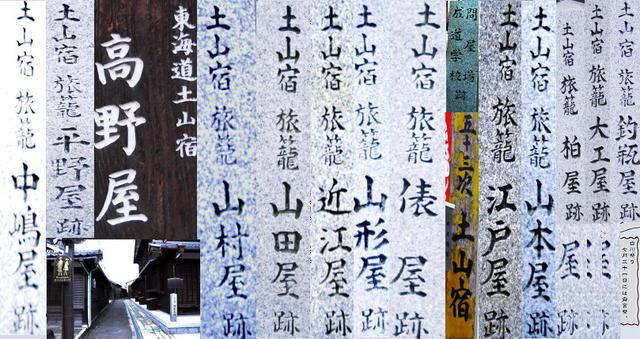 土山宿 旅籠 釣瓶屋跡
土山宿 旅籠 大工屋跡
土山宿 旅籠 柏屋跡
屋跡
土山宿 旅籠 山本屋跡
土山宿 旅籠 江戸屋跡
問屋場
成道学校跡
五十三次 土山宿
土山宿 旅籠 俵屋跡
土山宿 旅籠 山形屋跡
土山宿 旅籠 近江屋跡
土山宿 旅籠 山田屋跡
土山宿 旅籠 山村屋跡
東海道土山宿
高野屋
土山宿 旅籠 平野屋跡
土山宿 旅籠 中嶋屋跡